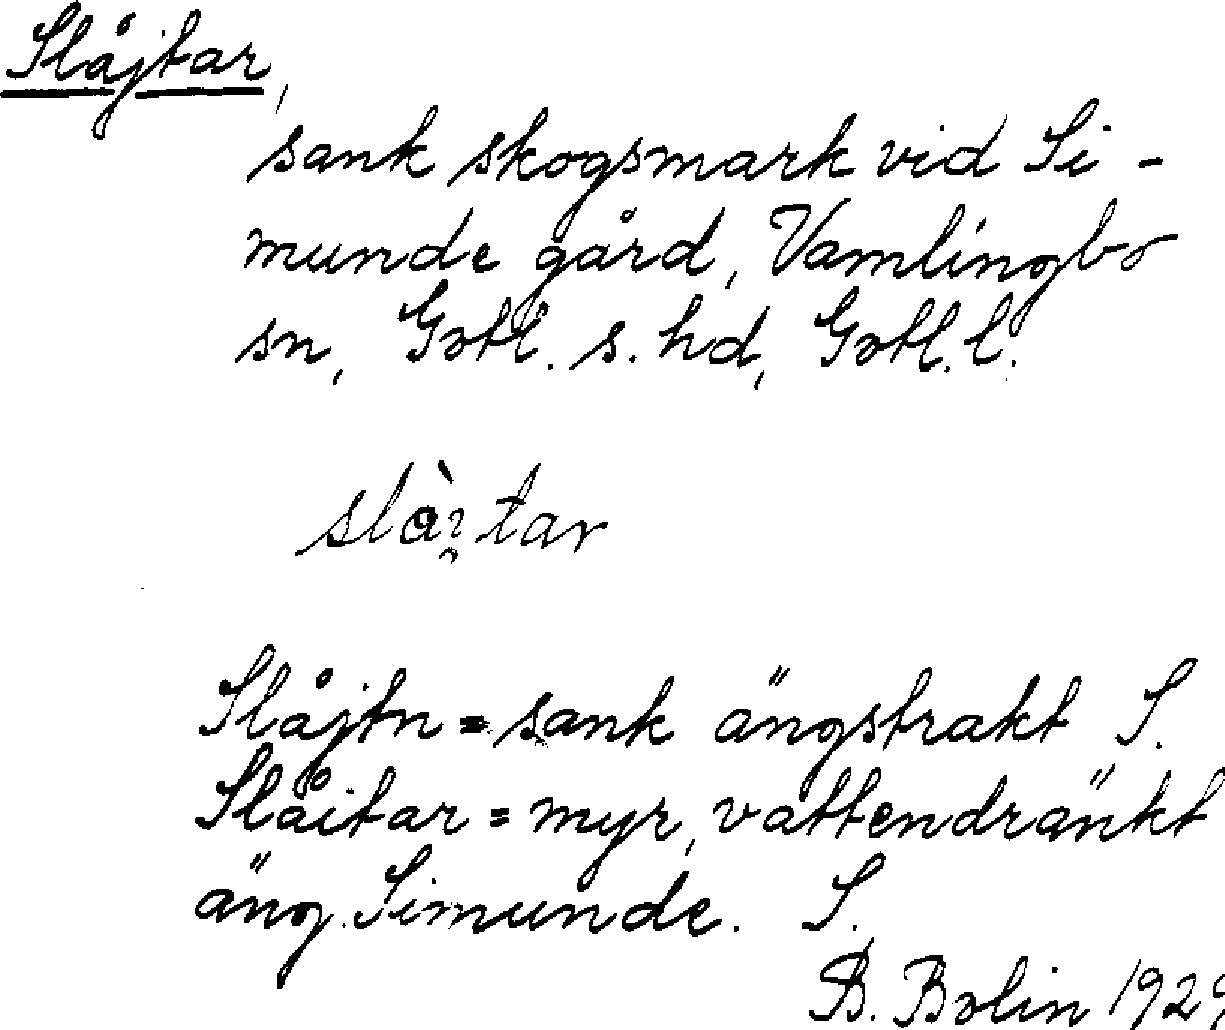 Slåjtar,
sank skogsmark vid Si-
munde gård, Vamlingbo
sn, Gotl. s. hd, Gotl. l.
Slåjtn = sank ängstrakt S.
Slåitar = myr, vattendränkt
äng. Simunde. S.
B. Bolin 1929